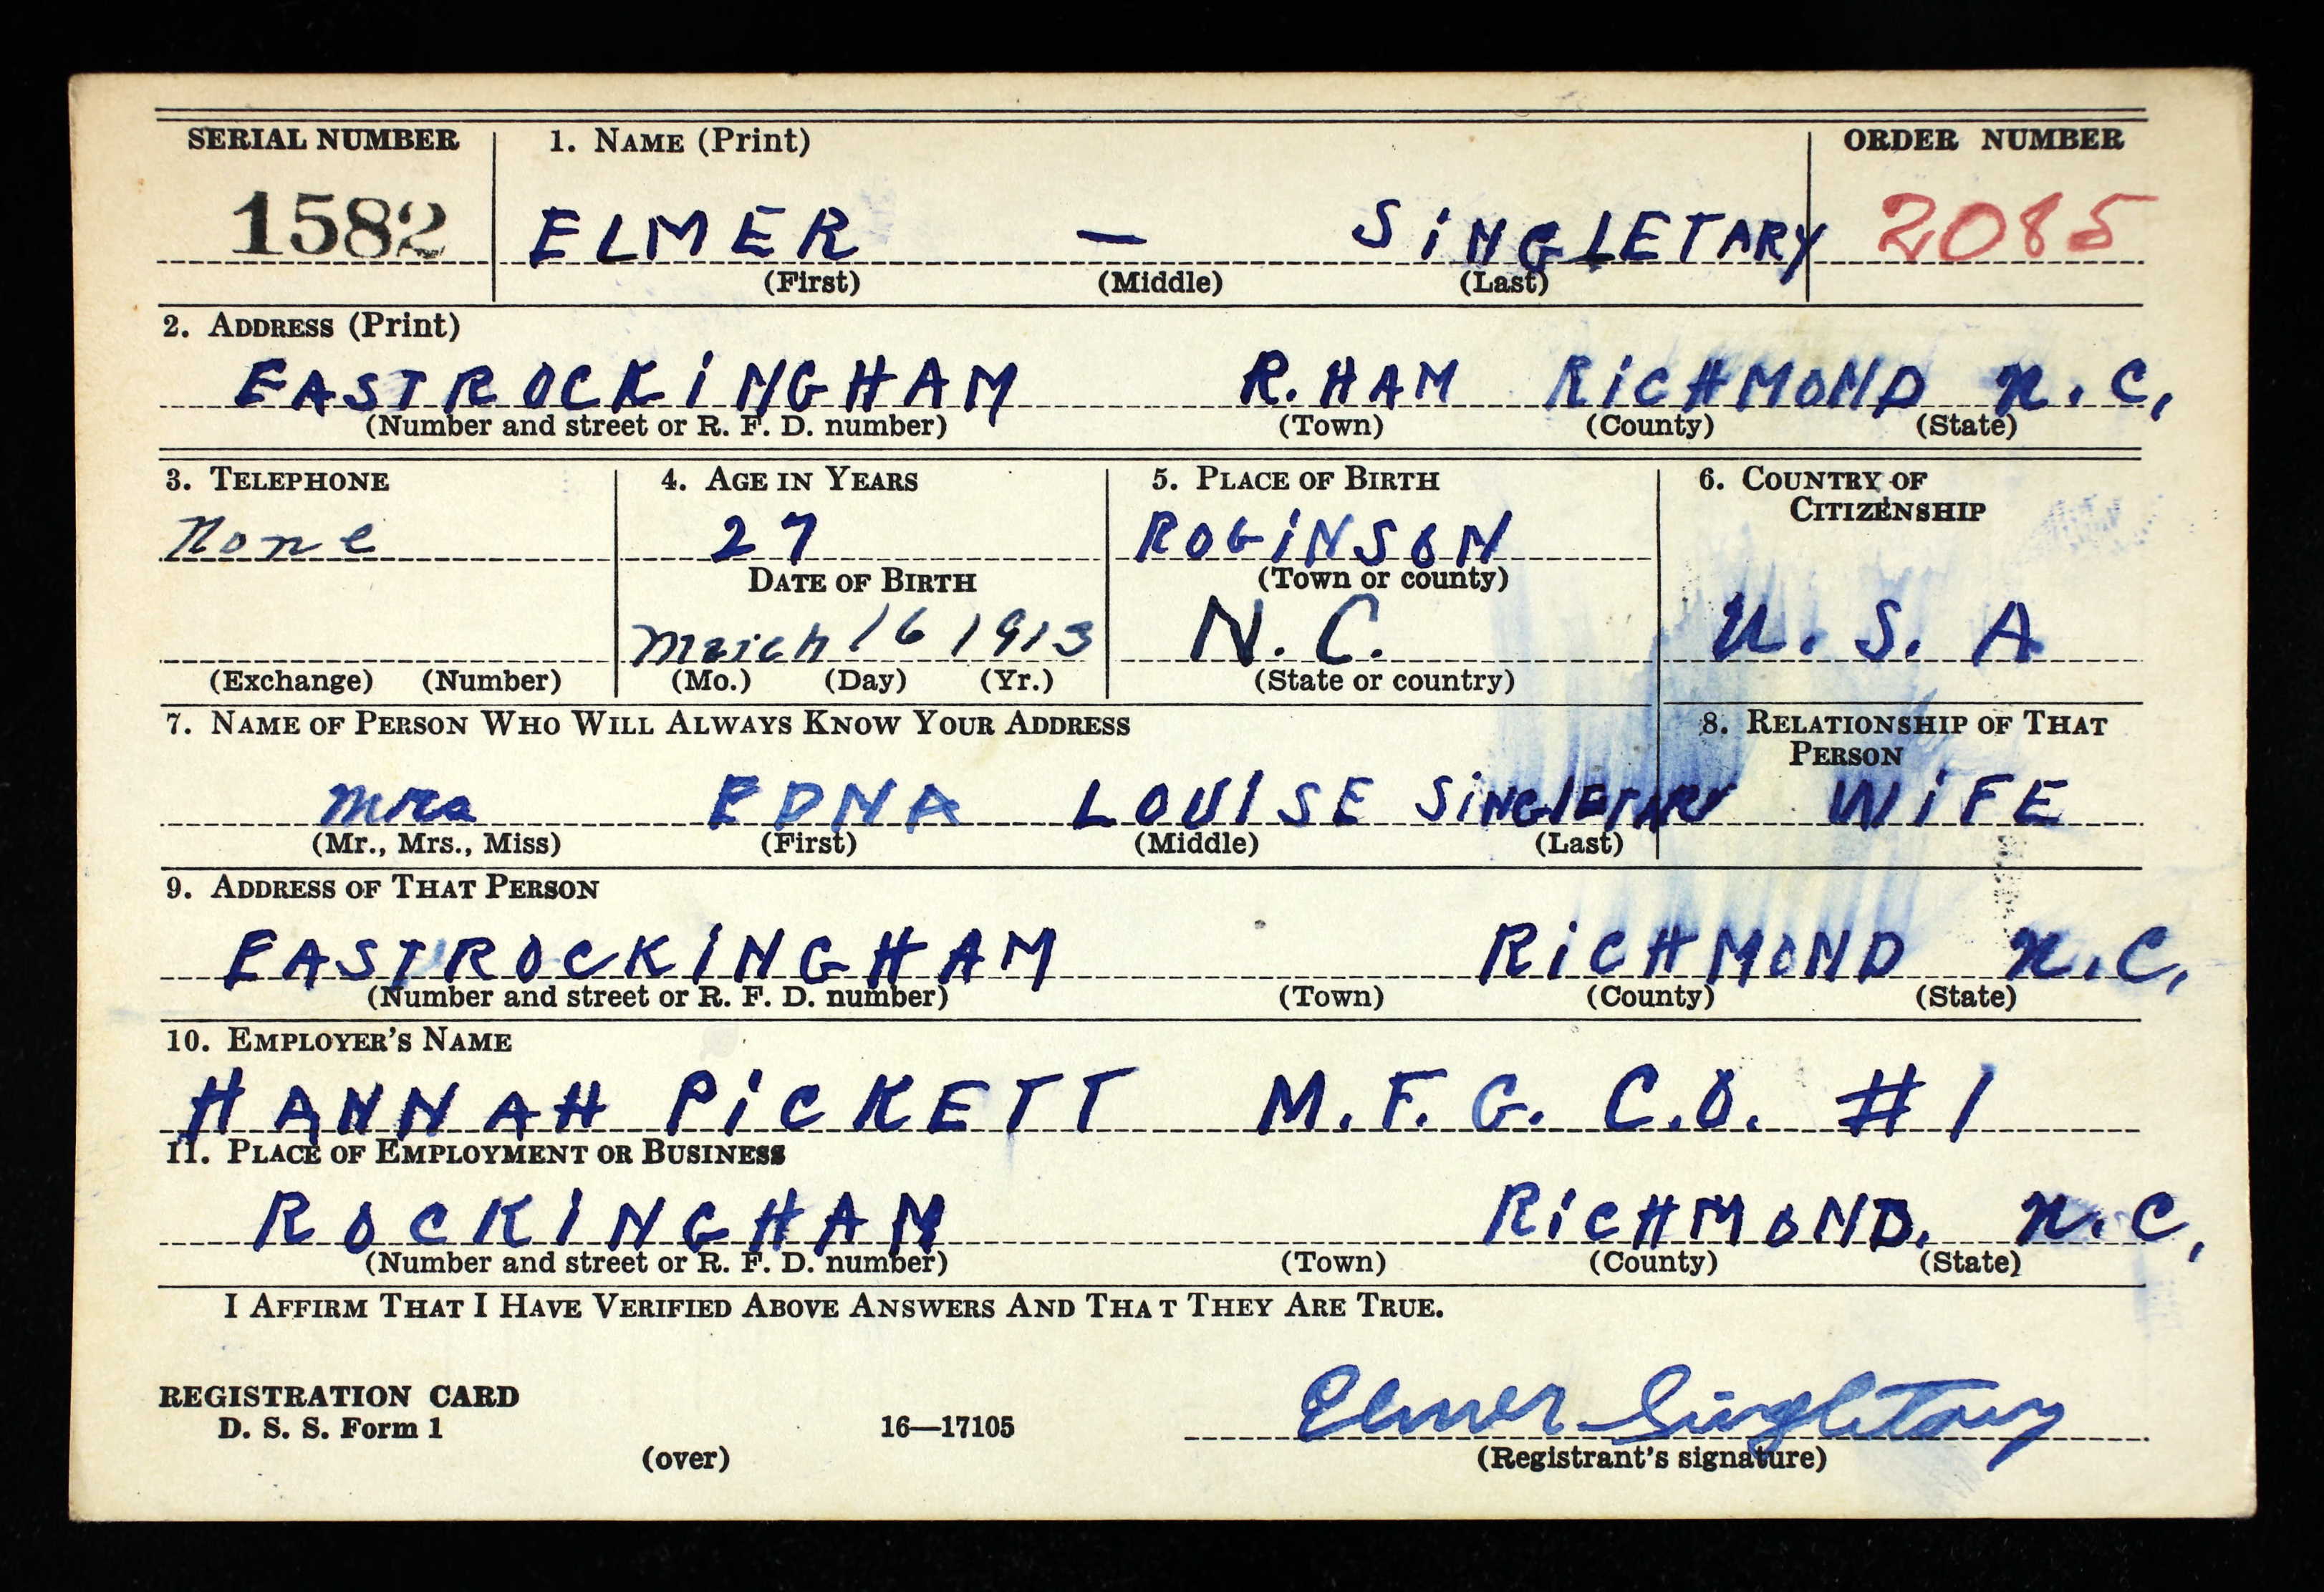 SERIAL NUMBER 1. NAME (Print) ORDER NUMBER
1582 ELMER — SINGLETARY 2085
(First) (Middle) (Last)
2. ADDRESS (Print)
EASTROCKINGHAM R.HAM RICHMOND N.C.
(Number and street or R. F. D. number) (Town) (County) (State)
3. TELEPHONE 4. AGE IN YEARS 5. PLACE OF BIRTH 6. COUNTRY OF
CITIZENSHIP
None 27 ROGINSON
DATE OF BIRTH (Town or county)
March 16 1913 N.C. U.S.A
(Exchange) (Number) (Mo.) (Day) (Yr.) (State or country)
7. NAME OF PERSON WHO WILL ALWAYS KNOW YOUR ADDRESS 8. RELATIONSHIP OF THAT
PERSON
Mrs EDNA LOUISE SINGLETARY WIFE
(Mr., Mrs., Miss) (First) (Middle) (Last)
9. ADDRESS OF THAT PERSON
EASTROCKINGHAM RICHMOND N.C.
(Number and street or R. F. D. number) (Town) (County) (State)
10. EMPLOYER'S NAME
HANNAH PICKETT M.F.G. C.O. #1
11. PLACE OF EMPLOYMENT OR BUSINESS
ROCKINGHAM RICHMOND. N.C,
(Number and street or R. F. D. number) (Town) (County) (State)
I AFFIRM THAT I HAVE VERIFIED ABOVE ANSWERS AND THAT THEY ARE TRUE.
Elmer Singletary
REGISTRATION CARD
D. S. S. Form 1 16—17105
(over) (Registrant's signature)